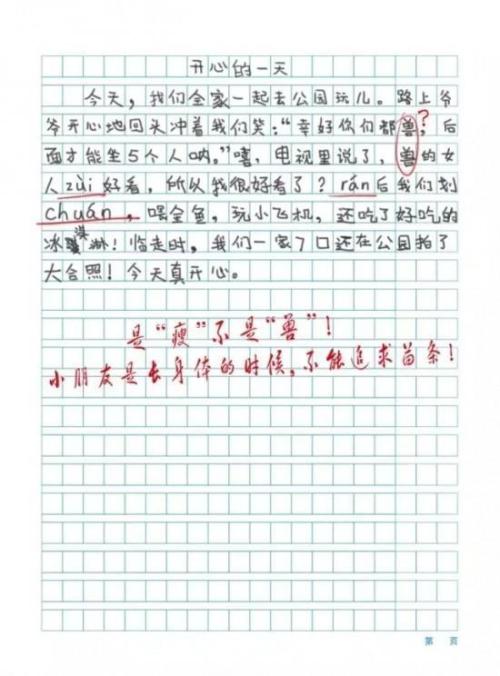 开心的一天
今天，我们全家一起去公园玩儿。路上爷
爷开心地回头冲着我们笑："幸好你们都兽，后?
面才能坐5个人呐。"嘻，电视里说了，兽的女
人zuì好看，所以我很好看了？rán后我们划
chuán，喂金鱼，玩小飞机，还吃了好吃的
冰淇淋！临走时，我们一家7口还在公园拍了
大合照！今天真开心。
是"瘦"不是"兽"！
小朋友是长身体的时候，不能追求苗条！
第 页